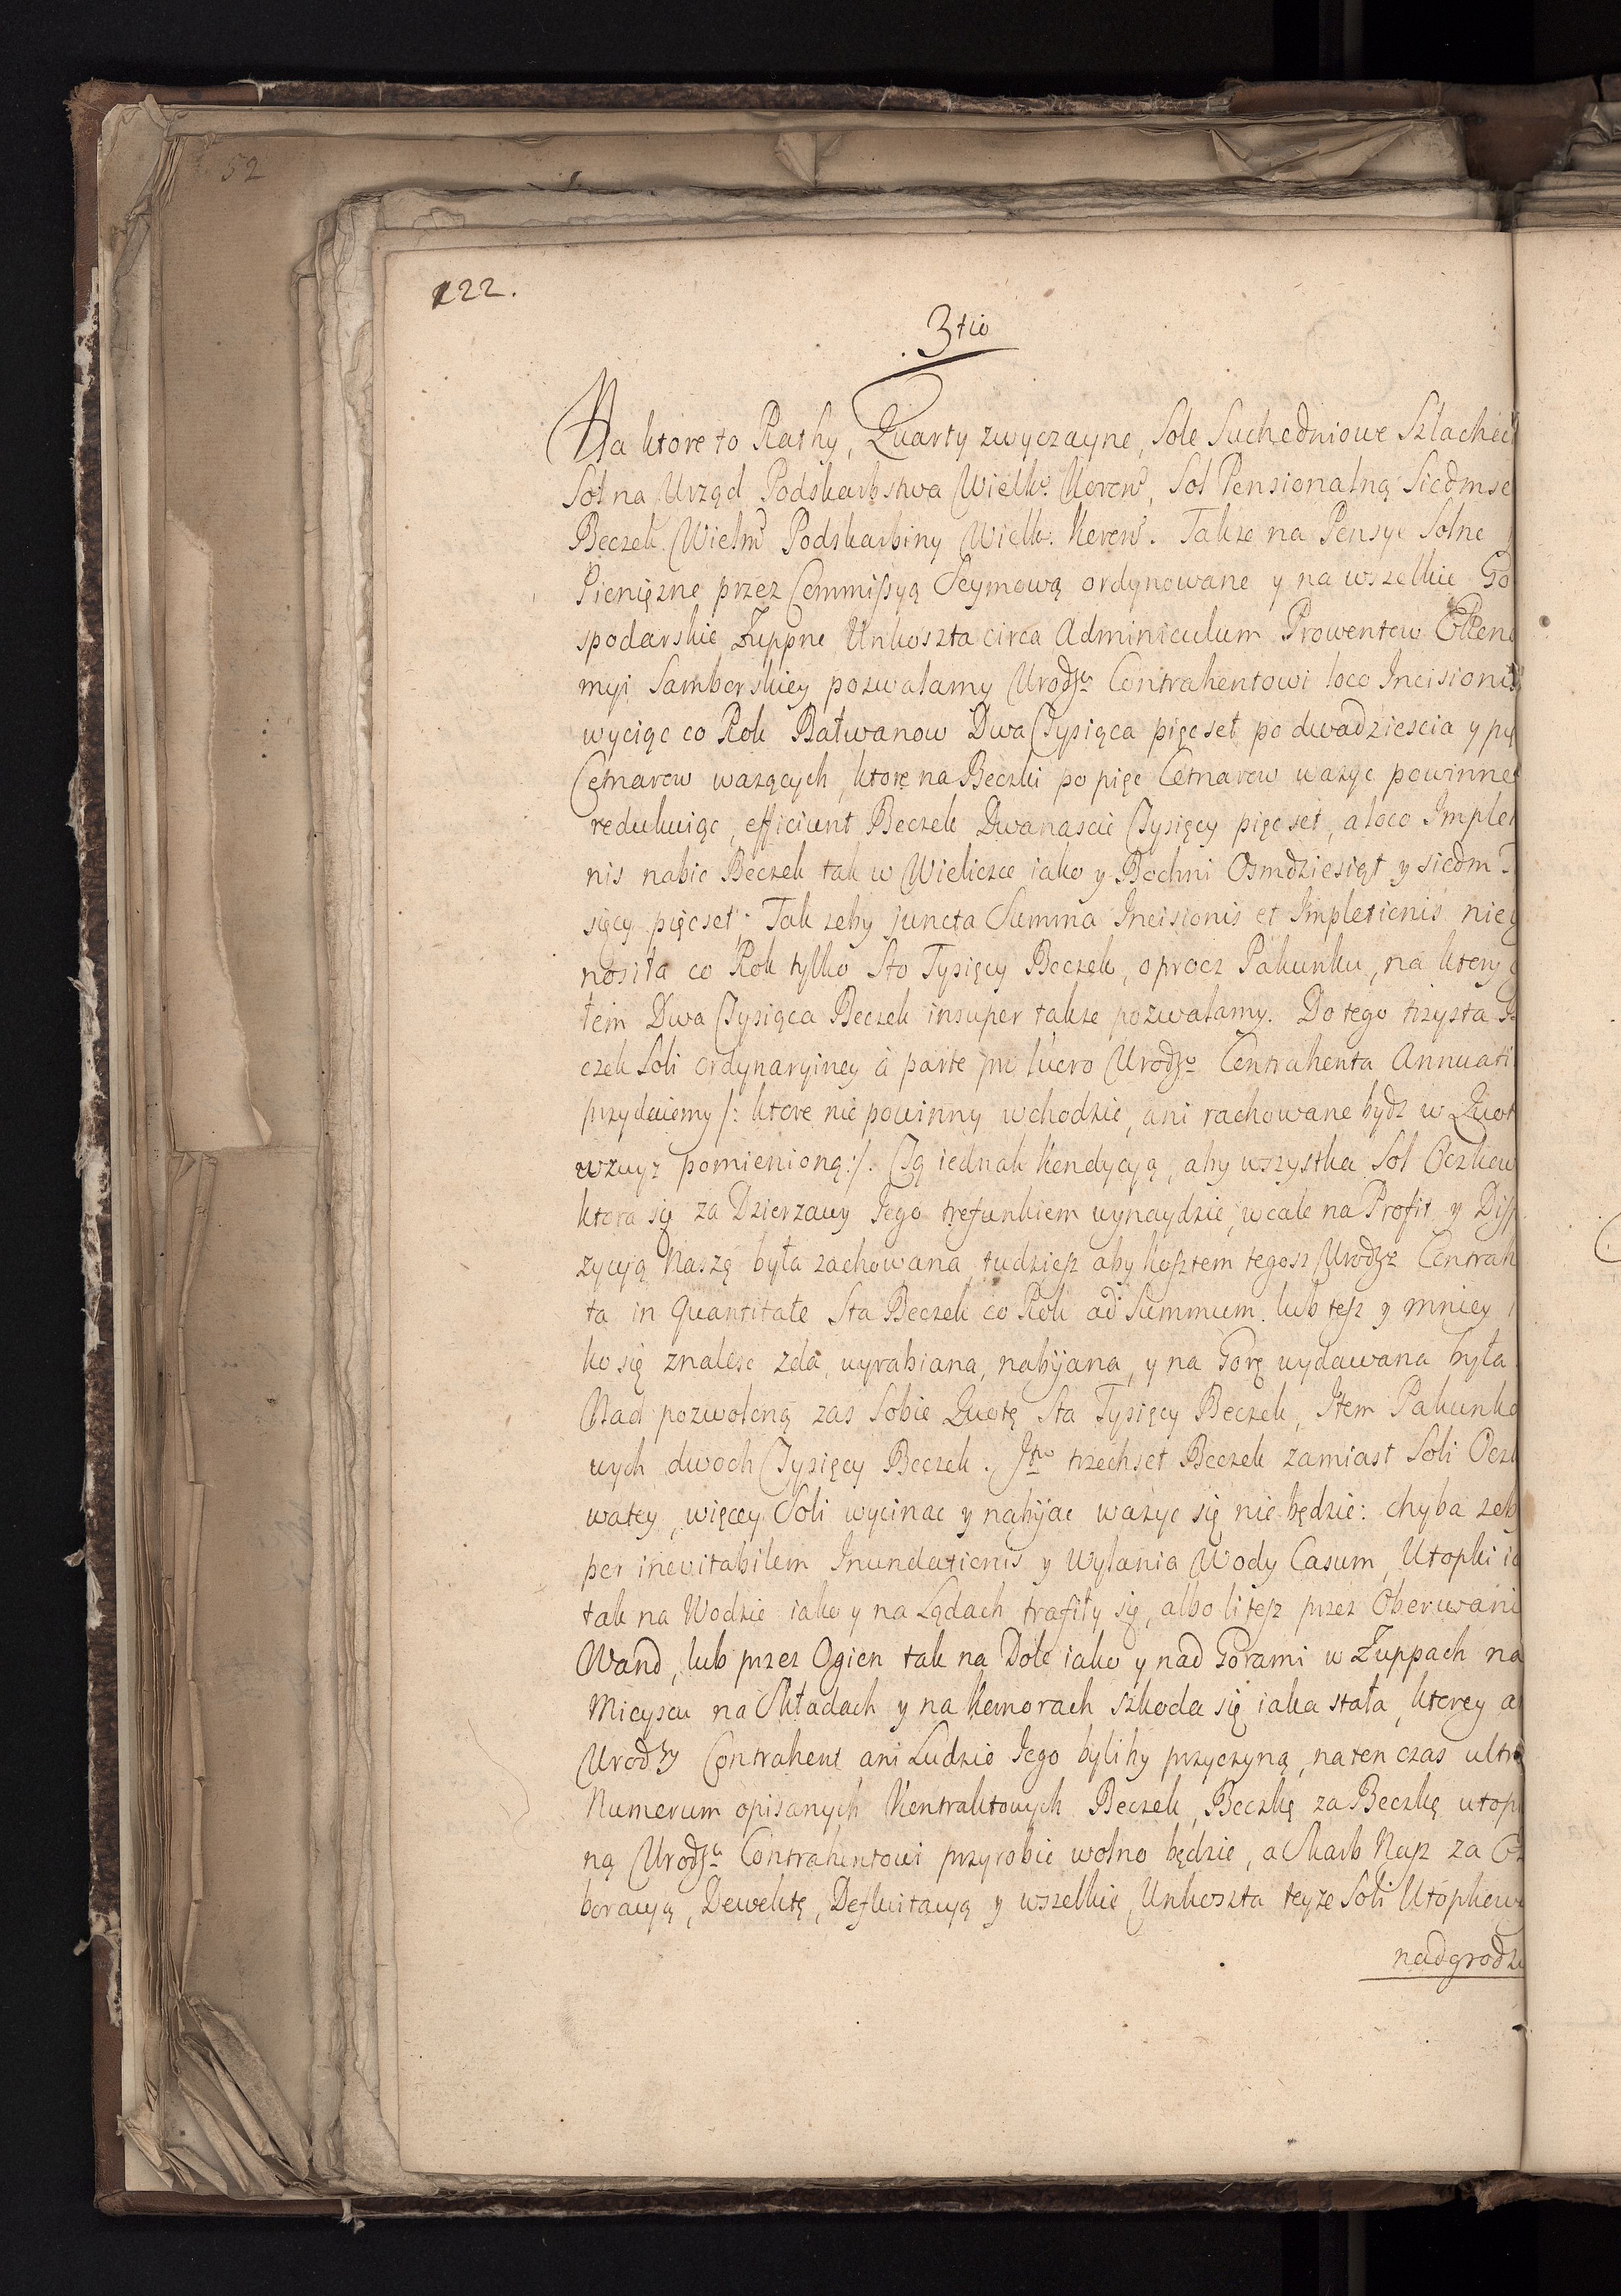 52
122.
3tio
Na ktore to Rathy, Quarty zwyczayne, Sole Suchedniowe Szlachec
Sol na Urząd Podskarbstwa Wielkᵒ Koroñ, Sol Pensionalną Siedmse
Beczek Wielmᵒ Podskarbiny Wielkᵒ Koroñ. Takze na Pensye Solne
Pienięzne przez Commissyą Seymową ordynowane y na wszelkie Go
spodarskie Zuppne Unkoszta circa Adminiculum Prowentow Ekono
myi Samborskiey pozwalamy Urodzᵘ Contrahentowi loco Incisionis
wyciąc co Rok Bałwanow Dwa Tysiąca pięcset po dwadziescia y pię
Cetnarow wazących, ktore na Beczki po pięc Cetnarow wazyc powinne
redukuiąc, efficiunt Beczek Dwanascie Tysięcy pięcset, a loco Impletio
nis nabic Beczek tak w Wieliczce iako y Bochni Osmdziesiąt y siedm T
sięcy pięcset. Tak zeby juncta Summa Incisionis et Impletionis nie
nosiła co Rok tylko Sto Tysięcy Beczek, oprocz Pakunku, na ktory
tem Dwa Tysiąca Beczek insuper takze pozwalamy. Do tego trzysta Be
czek Soli ordynaryiney à parte pro lucro Urodzᵒ Contrahenta Annuati
przydaiemy /: ktore nie powinny wchodzic, ani rachowane bydz w Quot
wzwyz pomienioną :/. Tą iednak Kondycyą, aby wszystka Sol Oczkow
ktora się za Dzierzawy Jego trefunkiem wynaydzie, wcale na Profit y Disp
zycyą Naszę była zachowana, tudziesz aby kosztem tegosz Urodzᵒ Contrah
ta in quantitate Sta Beczek co Rok ad Summum. lub tesz y mniey
ko się znalesc zda, wyrabiana, nabijana, y na Gorę wydawana była.
Nad pozwoloną zas Sobie Quotę Sta Tysięcy Beczek, Item Pakunko
wych dwoch Tysięcy Beczek. Itᵒ trzechset Beczek zamiast Soli Oczk
watey, więcey Soli wycinac y nabijac wazyc się nie będzie: chyba zeby
per inevitabilem Inundationis y Wylania Wody Casum, Utopki ia
tak na Wodzie iako y na Lądach trafiły się, albo li tesz przez Oberwani
Wand, lub przez Ogien tak na Dole iako y nad Gorami w Zuppach na
Mieyscu na Składach y na Komorach szkoda się iaka stała, ktorey a
Urodzy Contrahent ani Ludzie Jego byliby przyczyną, na ten czas ultra
Numerum opisanych Kontraktowych Beczek, Beczkę za Beczkę utop
ną Urodzᵘ Contrahentowi przyrobic wolno będzie, a Skarb Nasz za
boracyą, Dewektę, Defluitacyą y wszelkie Unkoszta teyze Soli Utopkow
nadgrodz